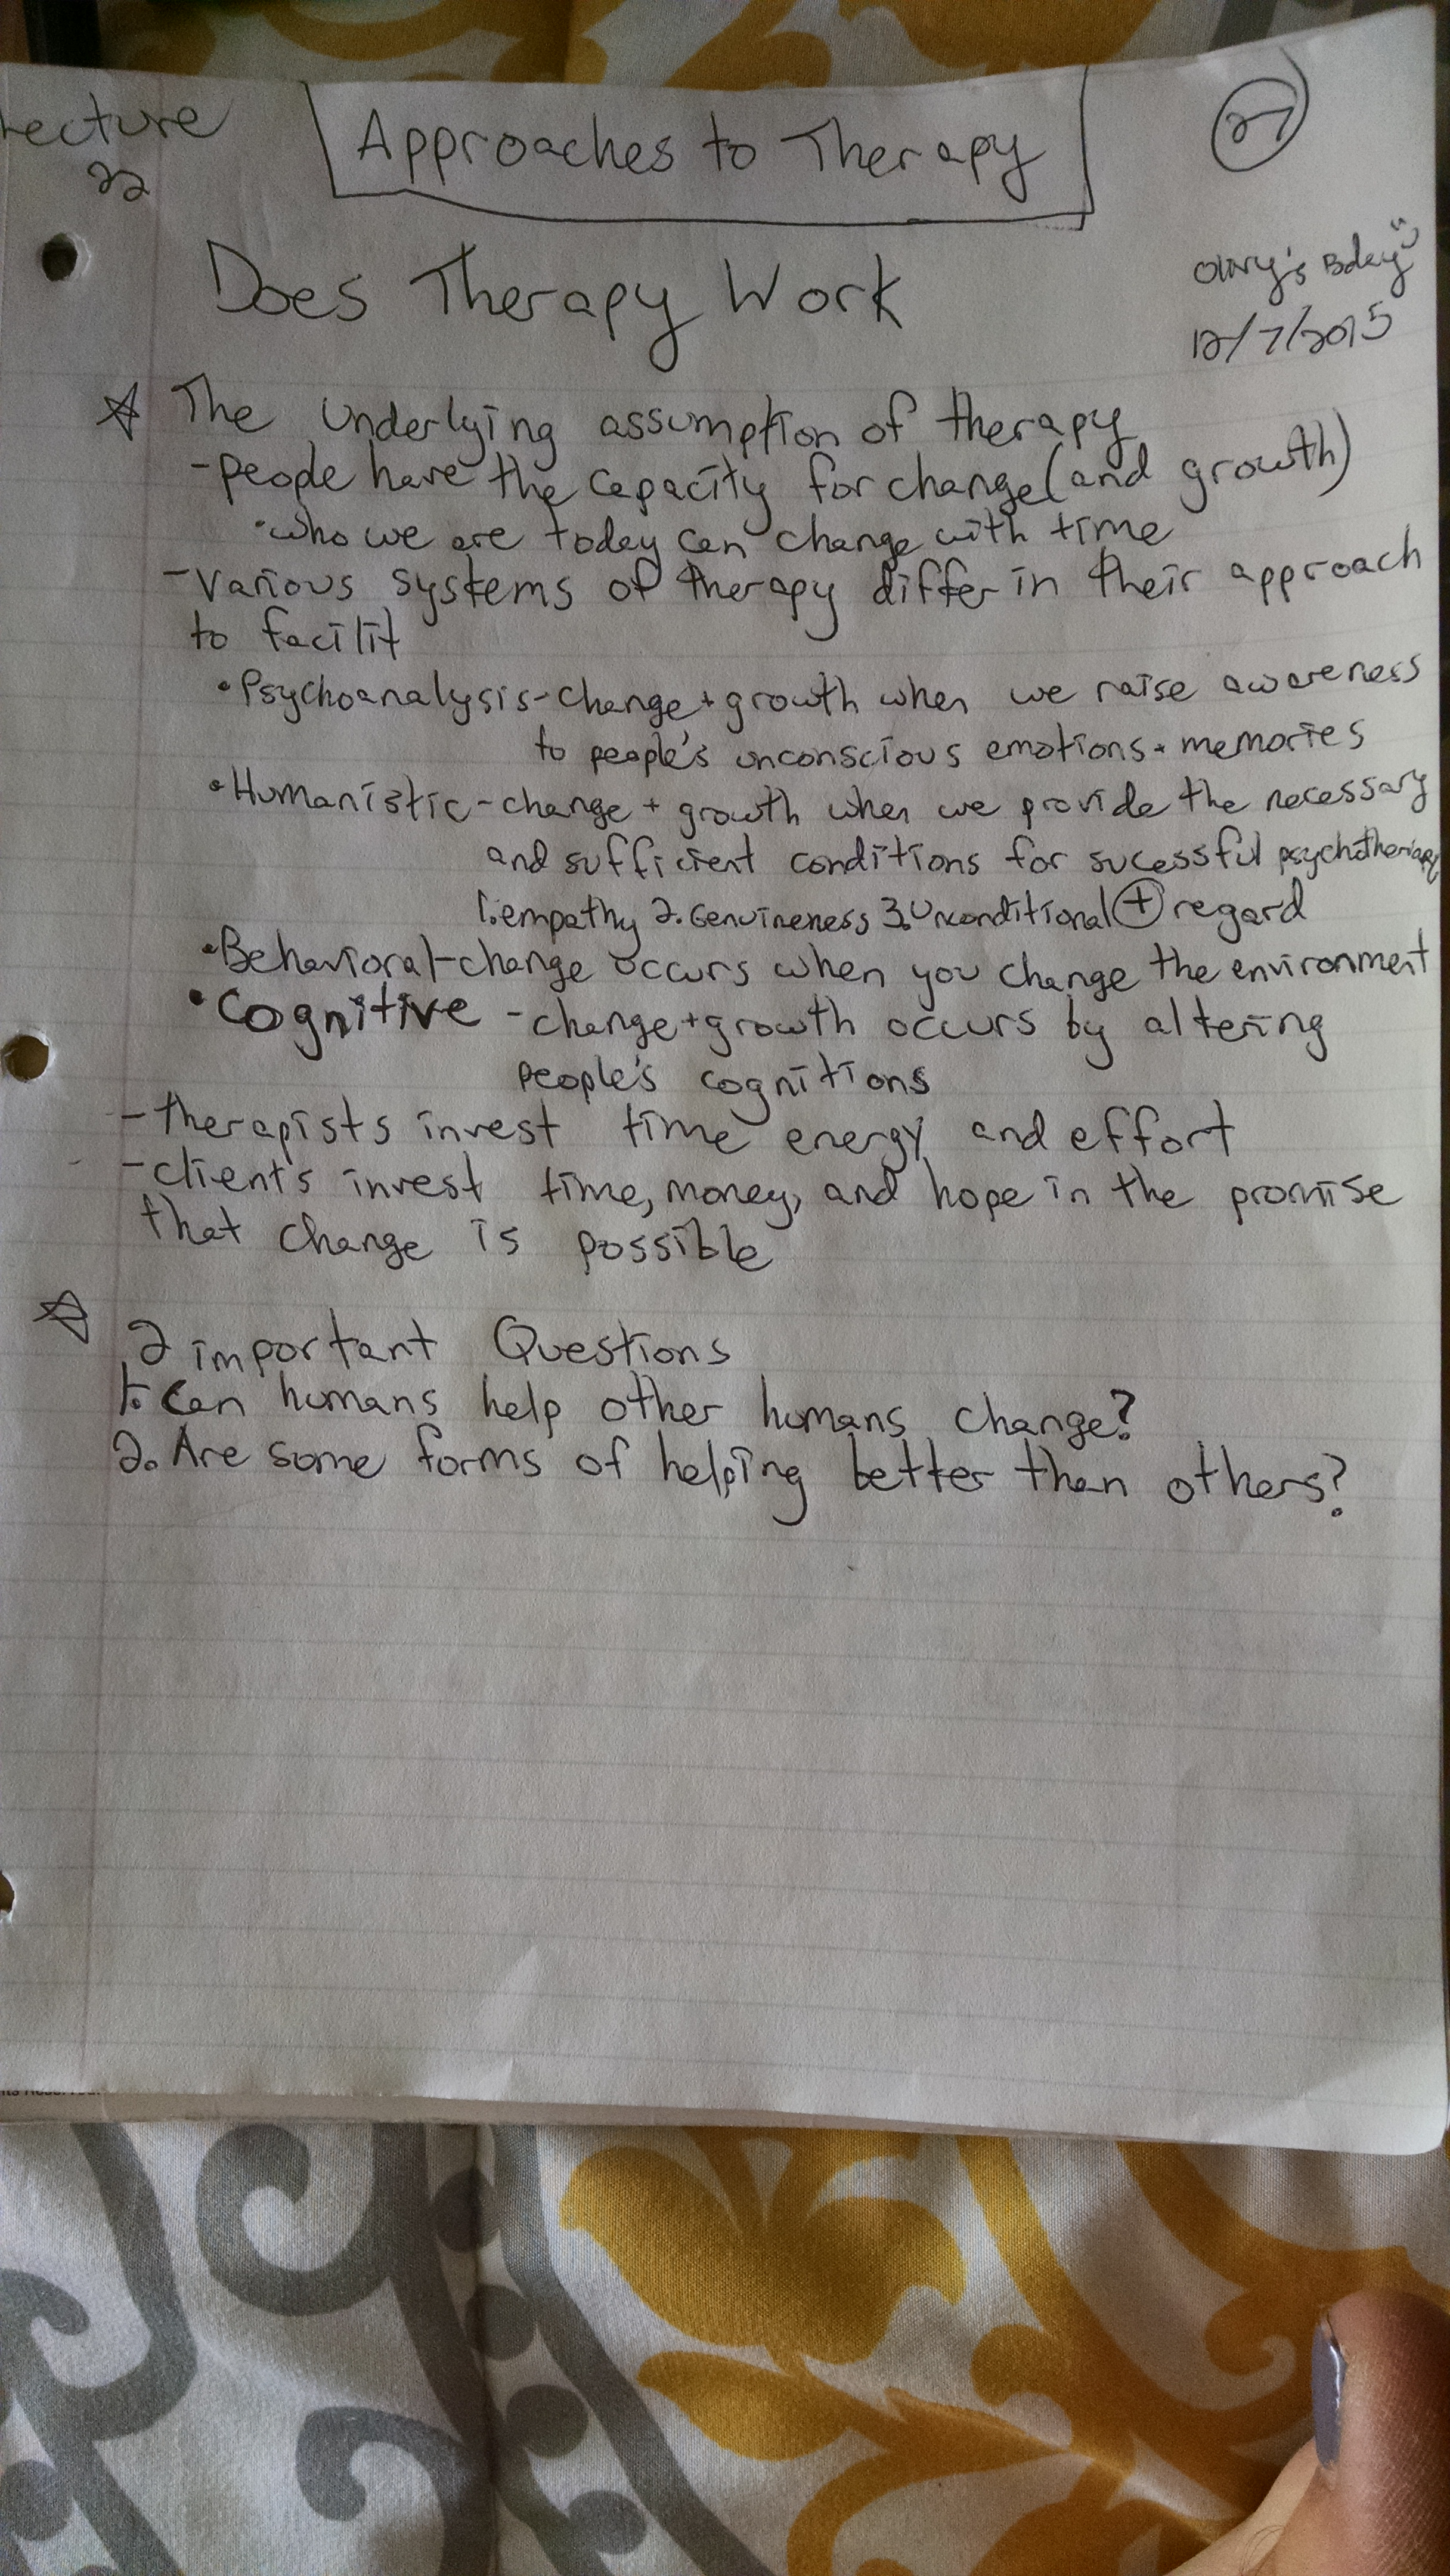 Lecture
22
Approaches to Therapy
27
Does Therapy Work
Bday
12/7/2015
The underlying assumption of therapy
- people have the capacity for change (and growth)
• who we are today can change with time
- various systems of therapy differ in their approach
to facilit
• Psychoanalysis - change + growth when we raise awareness
to people's unconscious emotions + memories
• Humanistic - change + growth when we provide the necessary
and sufficient conditions for sucessful psychotherapy
1. empathy 2. Genuineness 3. Unconditional + regard
• Behavioral - change occurs when you change the environment
• Cognitive - change + growth occurs by altering
people's cognitions
- therapists invest time energy and effort
- clients invest time, money, and hope in the promise
that change is possible
2 important Questions
1. Can humans help other humans change?
2. Are some forms of helping better than others?